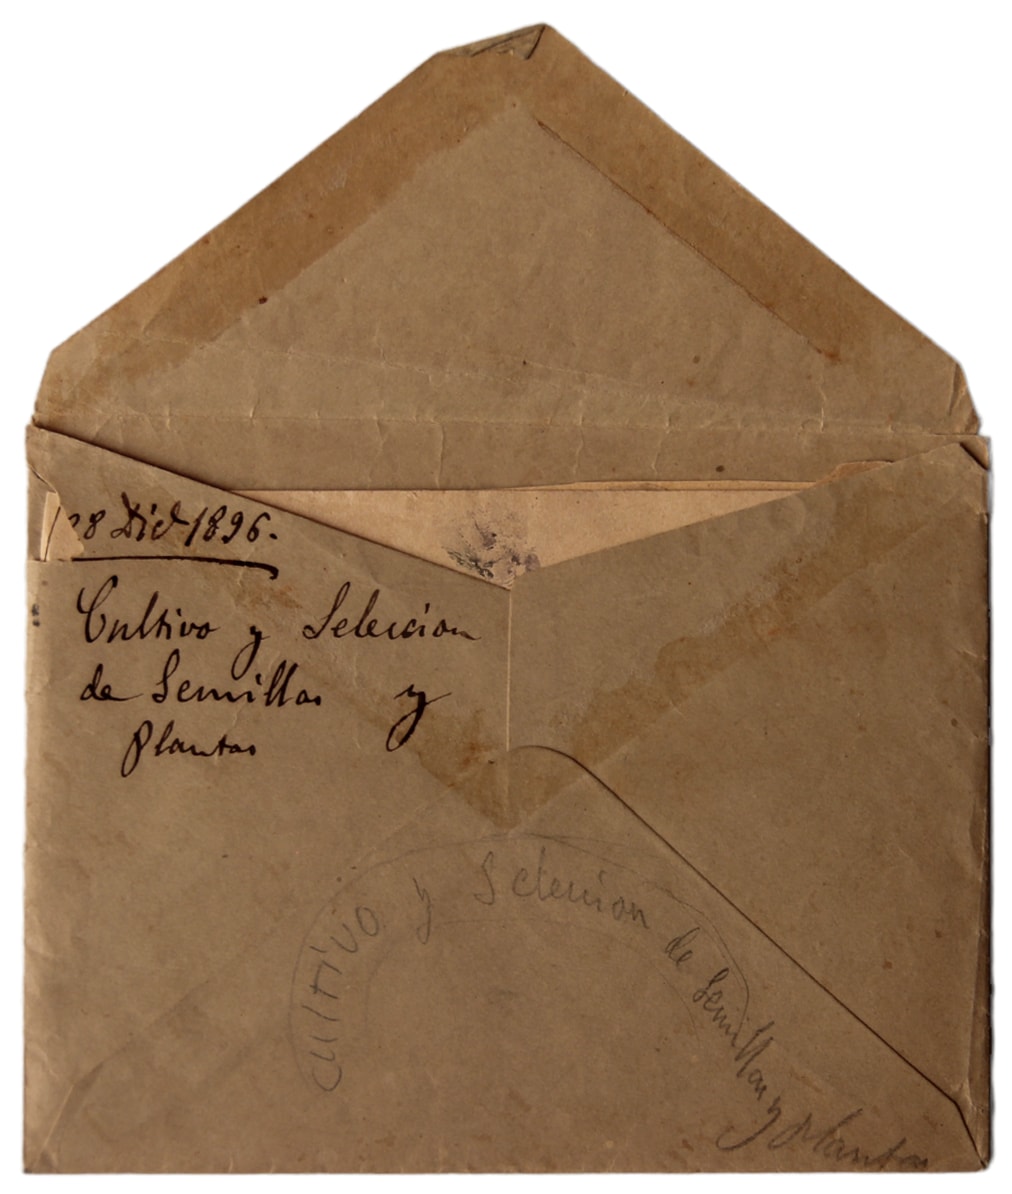 28 Dic 1896.
Cultivo y Seleccion
de Semillas y
Plantas
Cultivo y Seleccion de Semillas y Plantas